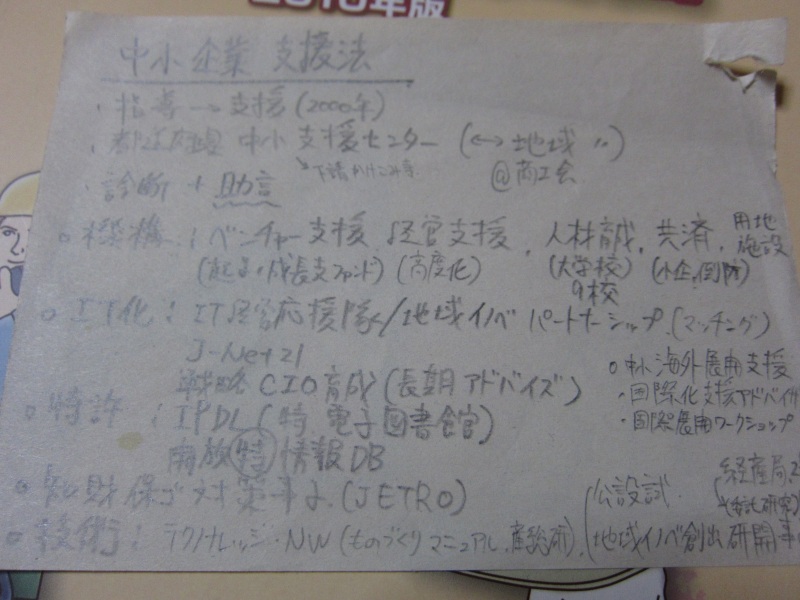 2010年版
中小企業 支援法
・指導→支援(2000年)
・都道府県 中小支援センター (↔地域 〃)
↳下請かけこみ寺 @商工会
・診断 + 助言
○機構:ベンチャー支援, 経営支援, 人材育成, 共済, 用地施設
(起支・成長支ファンド) (高度化) (大学校) (小企,倒防)
9校
○IT化:IT経営応援隊/地域イノベ パートナーシップ.(マッチング)
J-Net21
戦略CIO育成(長期アドバイズ)
○中小海外展開支援
・国際化支援アドバイ
・国際展開ワークショップ
○特許:IPDL(特 電子図書館)
開放特情報DB
○知財保護対策事よ.(JETRO)
○技術:テクノナレッジ・NW(ものづくりマニュアル.産総術),
公設試. 経産局
(委託研究)
地域イノベ創出研開事